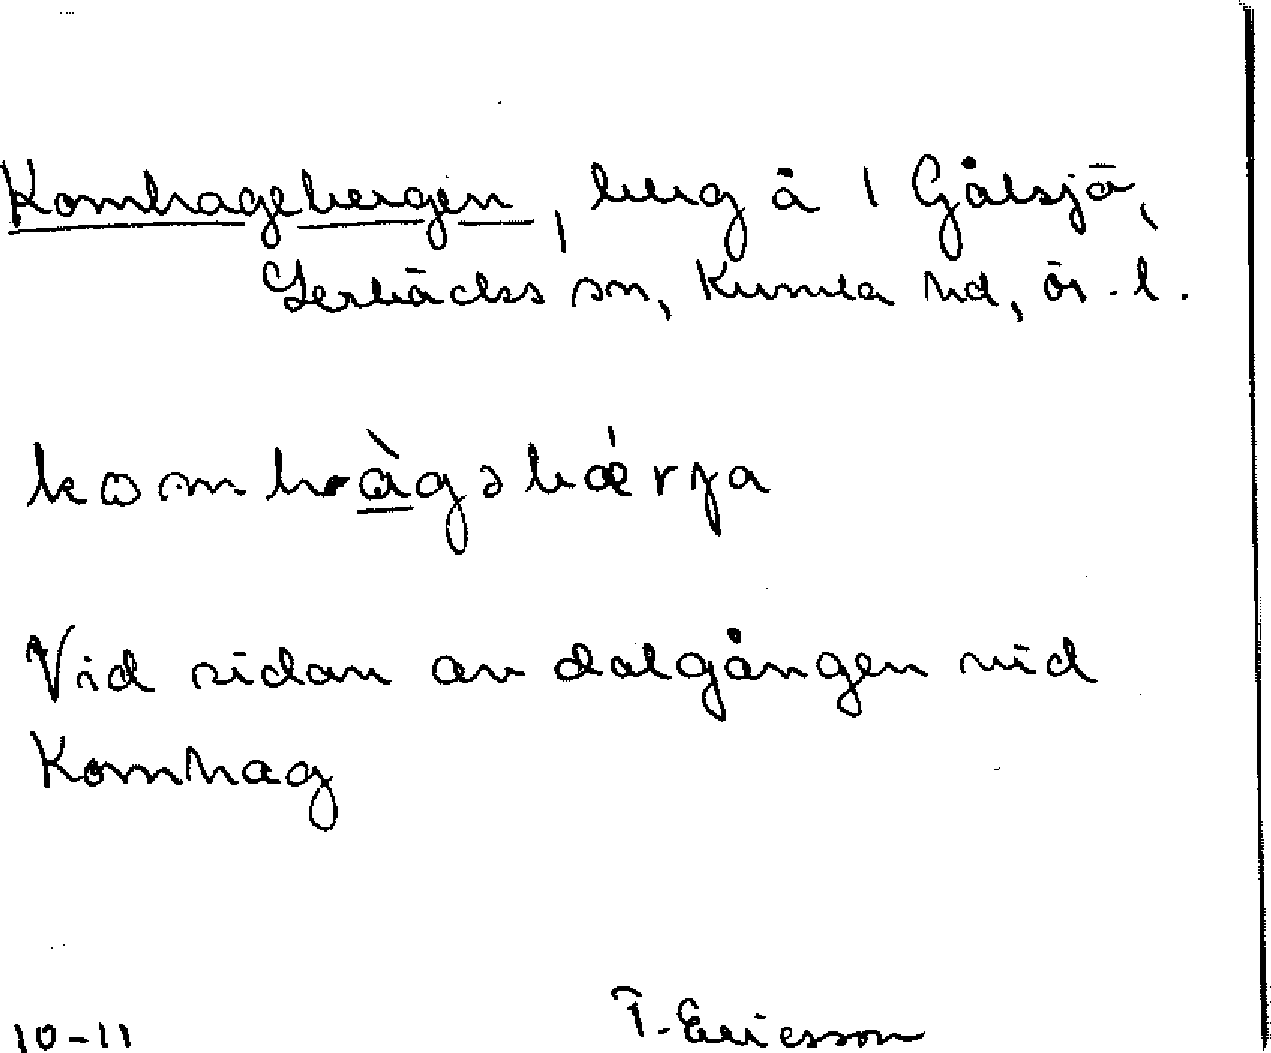 Komhagebergen, berg å 1 Gålsjö,
Lerbäcks sn, Kumla hd, ör. l.
komhàgəbǽrja
Vid sidan av dalgången vid
Komhag
10-11 T. Ericsson